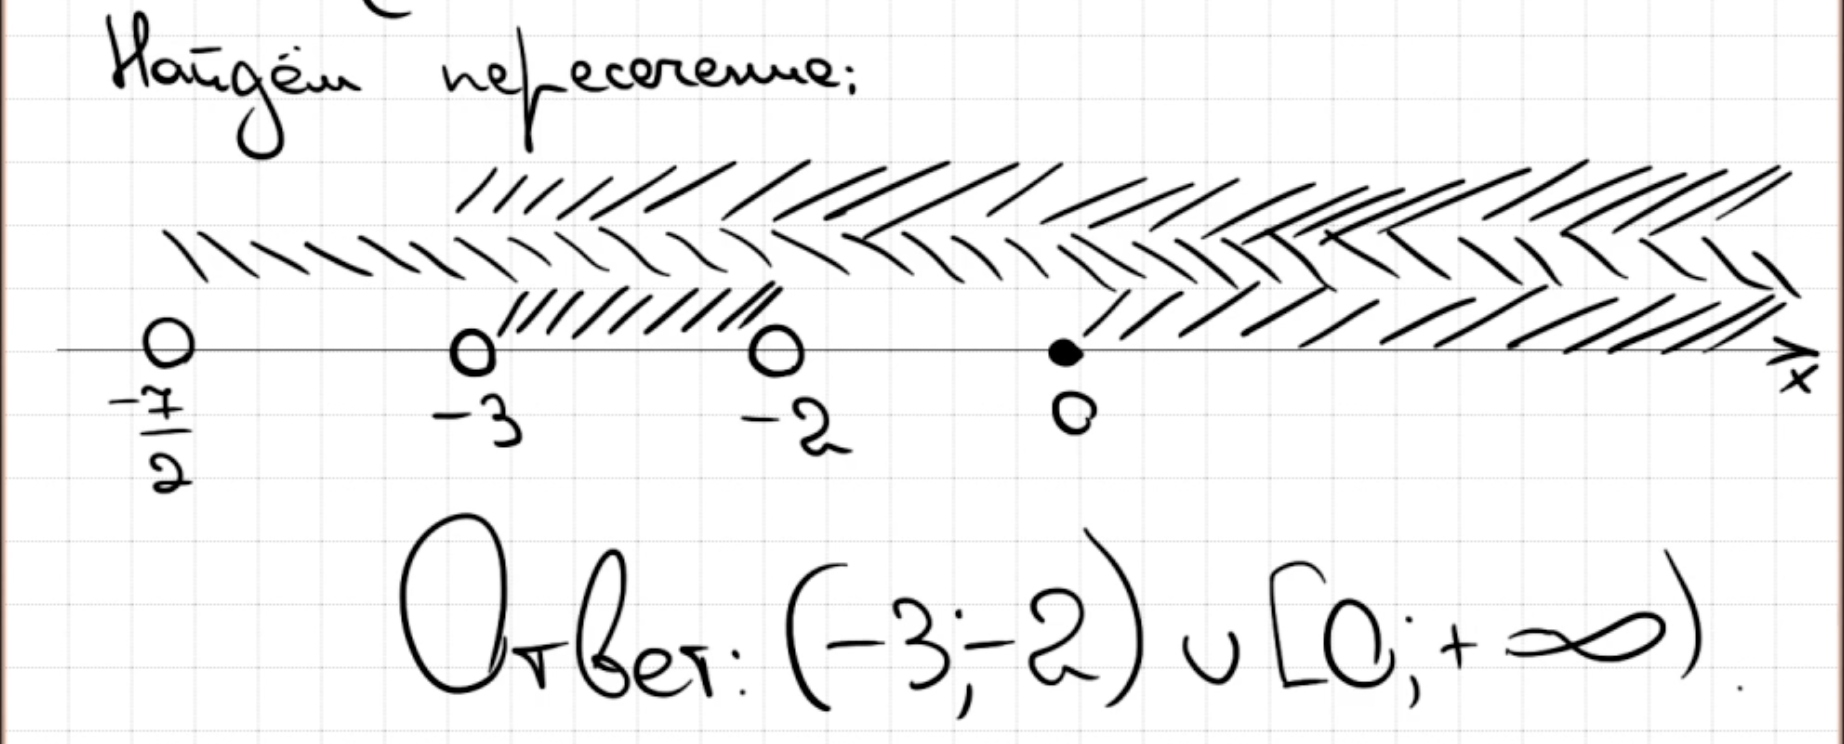 Найдём пересечение:
-7/2 -3 -2 0 x
Ответ: (-3;-2) ∪ [0;+∞).